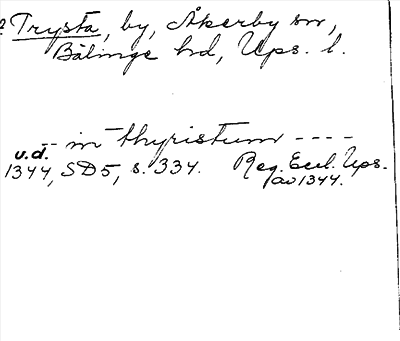 Trysta, by, Åkerby sn,
Bälinge hd, Ups. l.
-- in thyristum ----
u.d.
1344, SD5, s. 334. Reg. Eccl. Ups.
av 1344.